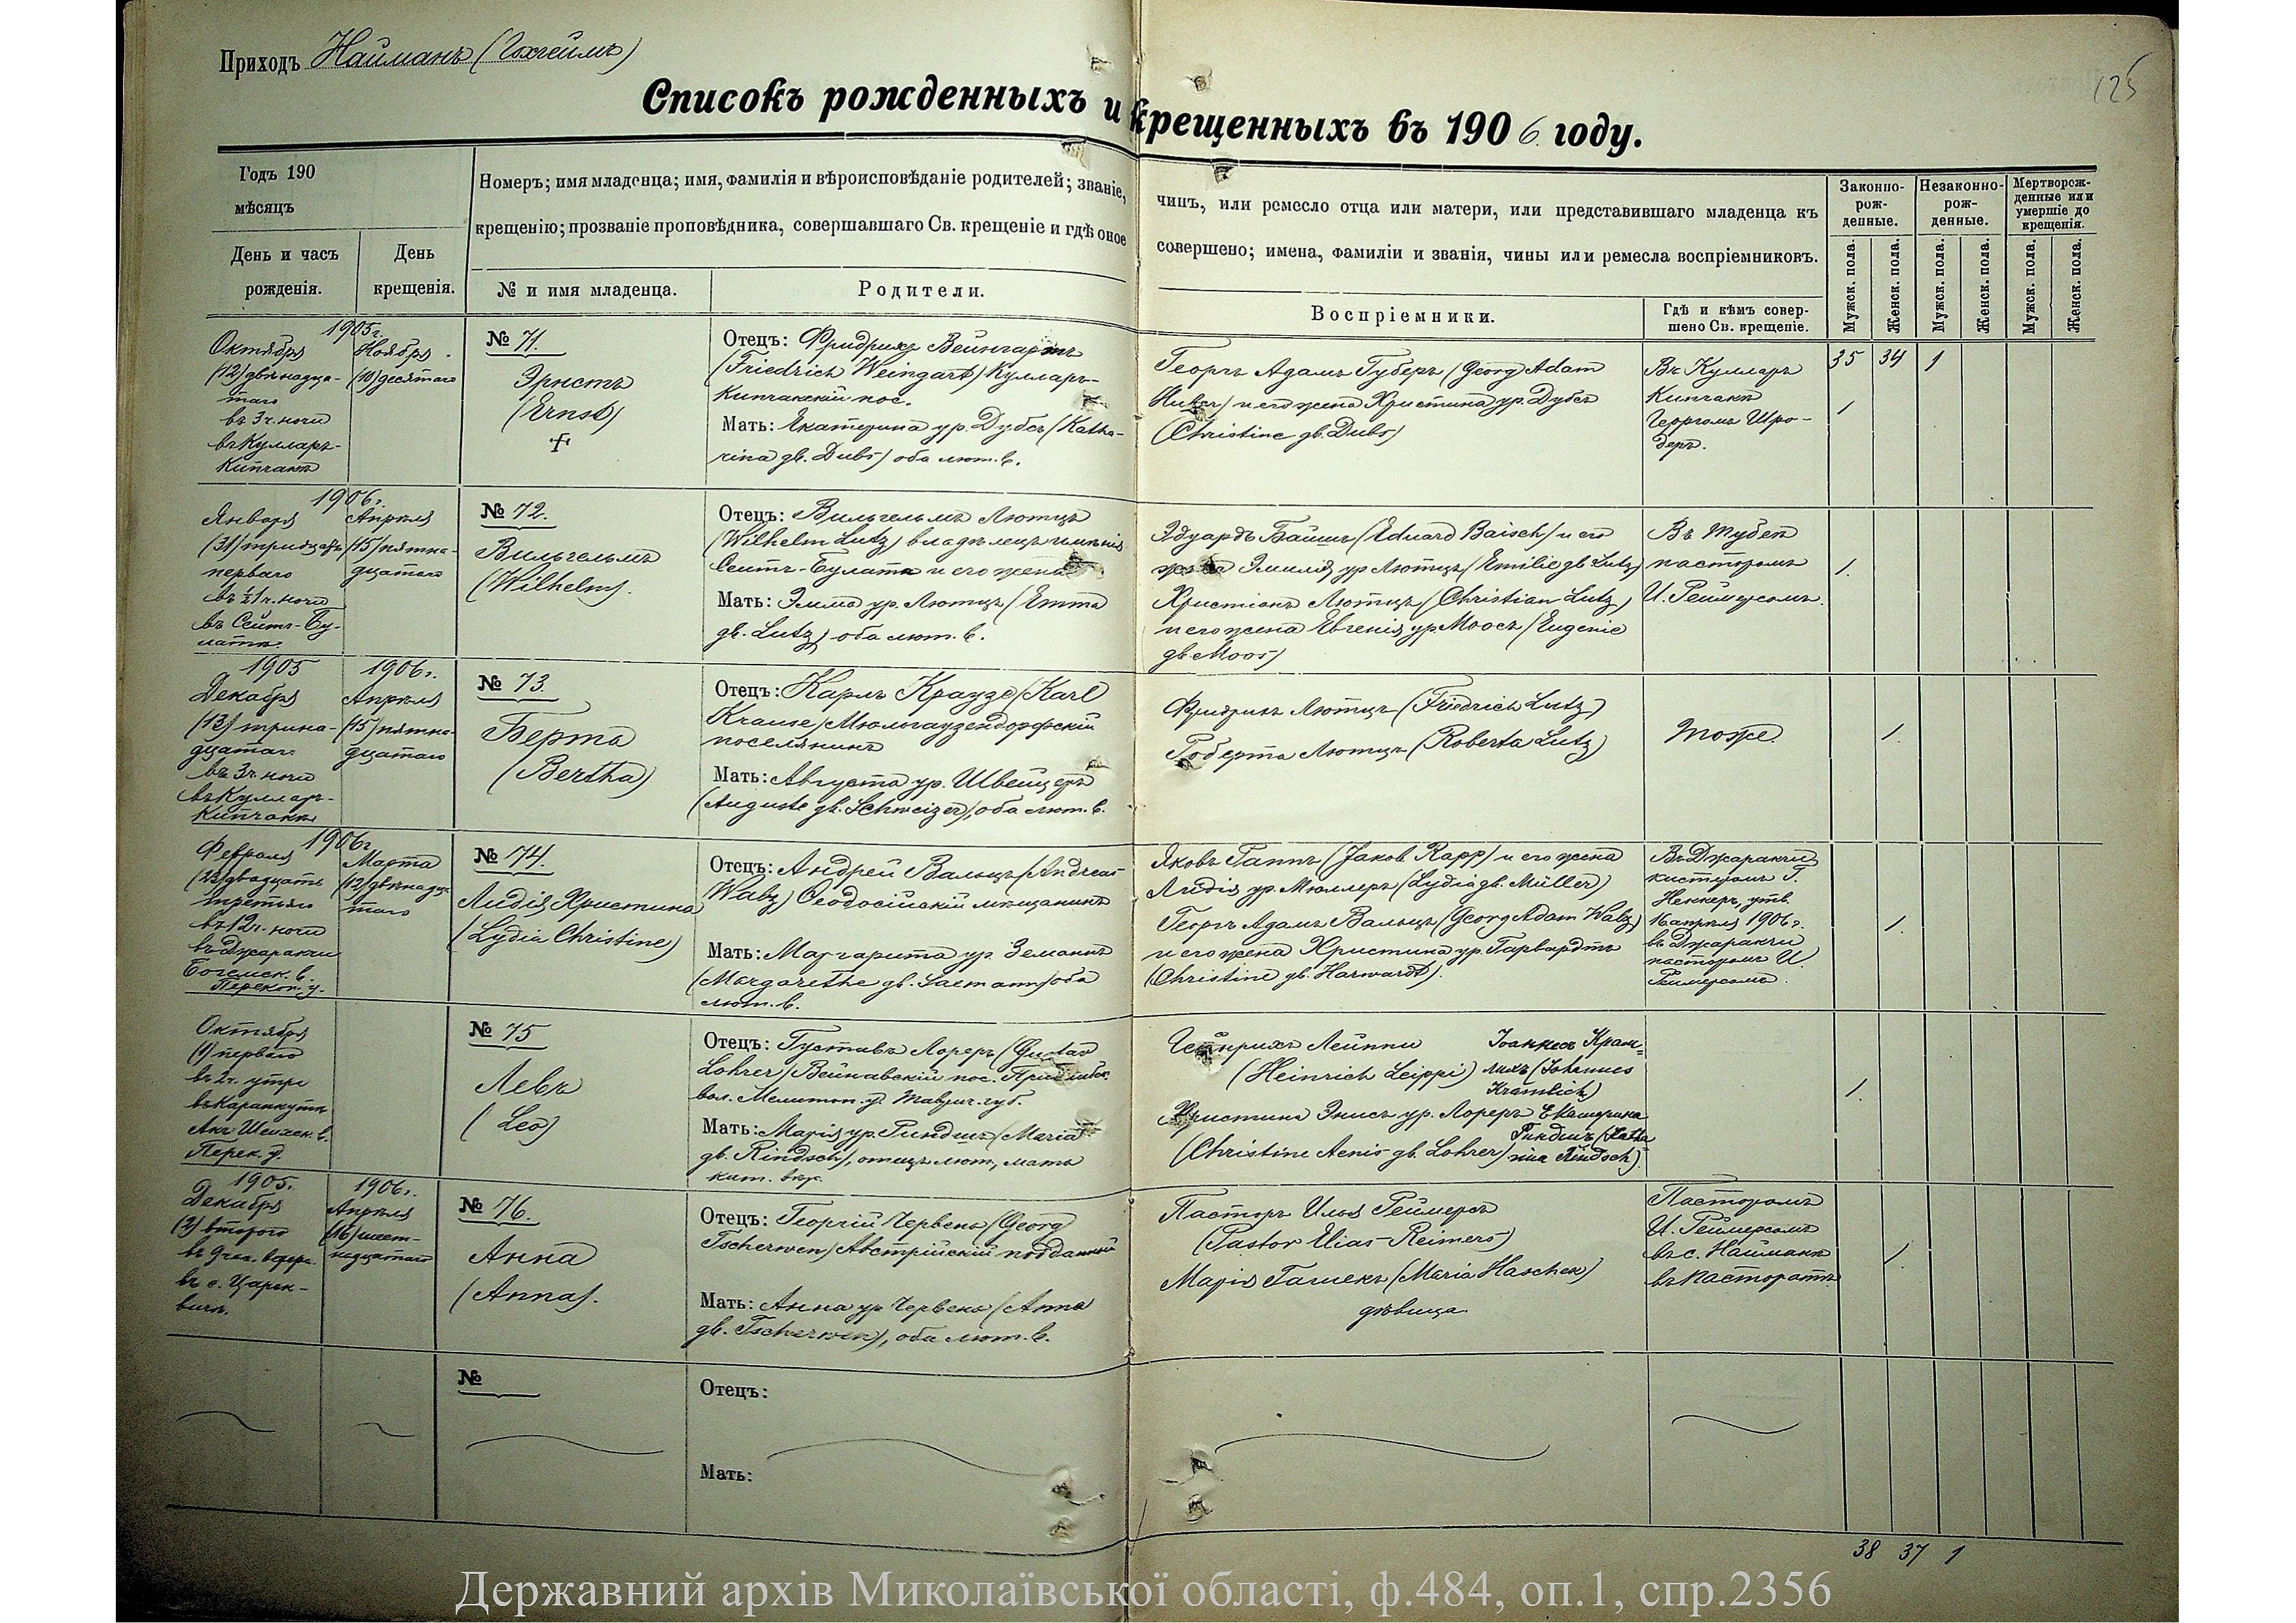 Приходъ Найманъ (Гохгеймъ)
125
Списокъ рожденныхъ и крещенныхъ въ 1906 году.
Годъ 190
мѣсяцъ
День и часъ
рожденія.
День
крещенія.
Номеръ; имя младенца; имя, фамилія и вѣроисповѣданіе родителей; званіе,
крещенію; прозваніе проповѣдника, совершавшаго Св. крещеніе и гдѣ оное
№ и имя младенца.
Родители.
чинъ, или ремесло отца или матери, или представившаго младенца къ
совершено; имена, фамиліи и званія, чины или ремесла воспріемниковъ.
Воспріемники.
Гдѣ и кѣмъ совер-
шено Св. крещеніе.
Законно-
рож-
денные.
Незаконно-
рож-
денные.
Мертворож-
денные или
умершіе до
крещенія.
Мужск. пола.
Женск. пола.
Мужск. пола.
Женск. пола.
Мужск. пола.
Женск. пола.
1905 г.
Октября
(12) двѣнадца-
таго
въ 3 ч. ночи
въ Кулларъ-
Кипчакѣ
Ноября
(10) десятаго
№ 71.
Эрнстъ
(Ernst)
Отецъ: Фридрихъ Вейнгартъ
(Friedrich Weingart) Кулларъ-
Кипчакскій пос.
Мать: Екатерина ур. Дубсъ (Katha-
rina gb. Dubs) оба лют. в.
Георгъ Адамъ Губеръ (Georg Adam
Huber) и его жена Христина ур. Дубсъ
(Christine gb. Dubs)
Въ Кулларъ
Кипчакѣ
Георгомъ Шро-
деръ.
35 34 1
1
1906 г.
Января
(31) тридцать
перваго
въ ½1 ч. ночи
въ Сеитъ-Бу-
латѣ.
Апрѣля
(15) пятна-
дцатаго
№ 72.
Вильгельмъ
(Wilhelm).
Отецъ: Вильгельмъ Лютцъ
(Wilhelm Lutz) владѣлецъ имѣнія
Сеитъ-Булатъ и его жена
Мать: Эмма ур. Лютцъ (Emma
gb. Lutz) оба лют. в.
Эдуардъ Байшъ (Eduard Baisch) и его
жена Эмилія ур Лютцъ (Emilie gb Lutz)
Христіанъ Лютцъ (Christian Lutz)
и его жена Евгенія ур. Моосъ (Eugenie
gb. Moos)
Въ Тубек
пасторомъ
И. Реймерсомъ.
1.
1905
Декабря
(13) трина-
дцатаго
въ 3 ч. ночи
въ Кулларъ-
Кипчакѣ
1906 г.
Апрѣля
(15) пятна-
дцатаго
№ 73.
Берта
(Bertha)
Отецъ: Карлъ Краузе (Karl
Krause) Мюльгаузендорфскій
поселянинъ
Мать: Августа ур. Швейцеръ
(Auguste gb. Schweizer), оба лют. в.
Фридрихъ Лютцъ (Friedrich Lutz)
Роберта Лютцъ (Roberta Lutz)
Тоже.
1.
1906 г
Февраля
(23) двадцать
третьяго
въ 12 ч. ночи
въ Джаракчи
Богемск. в.
Перекоп. у.
Марта
(12) двѣнадца-
таго
№ 74.
Лидія Христина
(Lydia Christine)
Отецъ: Андрей Вальцъ (Andreas
Walz) Ѳеодосійскій мѣщанинъ
Мать: Маргарита ур. Земаннъ
(Margarethe gb. Saemann) оба
лют. в.
Яковъ Раппъ (Jakob Rapp) и его жена
Лидія ур. Мюллеръ (Lydia gb. Müller)
Георгъ Адамъ Вальцъ (Georg Adam Walz)
и его жена Христина ур. Гарвардтъ
(Christine gb. Harwardt).
Въ Джаракчи
кистеромъ Г.
Неккеръ, утв.
16 апрѣля 1906 г.
въ Джаракчи
пасторомъ И.
Реймерсомъ.
1.
Октября
(1) перваго
въ 2 ч. утра
въ Каранкутѣ
Акъ Шеихск. в.
Перек. у.
№ 75
Левъ
(Leo)
Отецъ: Густавъ Лореръ (Gustav
Lohrer) Вейнавскій пос. Пришибск.
вол. Мелитоп. у. Таврич. губ.
Мать: Марія ур. Риндшъ (Maria
gb. Rindsch), отецъ лют., мать
кат. вѣр.
Гейнрихъ Лейппи
(Heinrich Leippi)
Христина Энисъ ур. Лореръ
(Christine Aenis gb. Lohrer)
Іоаннесъ Крем-
лихъ (Johannes
Krämlich)
Екатерина
Риндшъ (Katha-
rina Rindsch).
1.
1905.
Декабря
(2) второго
въ 9 час. вечера
въ с. Царек-
вичъ.
1906 г.
Апрѣля
(16) шест-
надцатаго
№ 76.
Анна
(Anna).
Отецъ: Георгій Червенъ (Georg
Tscherwen) Австрійскій подданный
Мать: Анна ур Червенъ (Anna
gb. Tscherwen), оба лют. в.
Пасторъ Илья Реймерсъ
(Pastor Elias Reimers)
Марія Гашекъ (Maria Haschek)
дѣвица.
Пасторомъ
И. Реймерсомъ
въ с. Найманъ
въ пасторатѣ
1.
№
Отецъ:
Мать:
38 37 1
Державний архів Миколаївської області, ф.484, оп.1, спр.2356